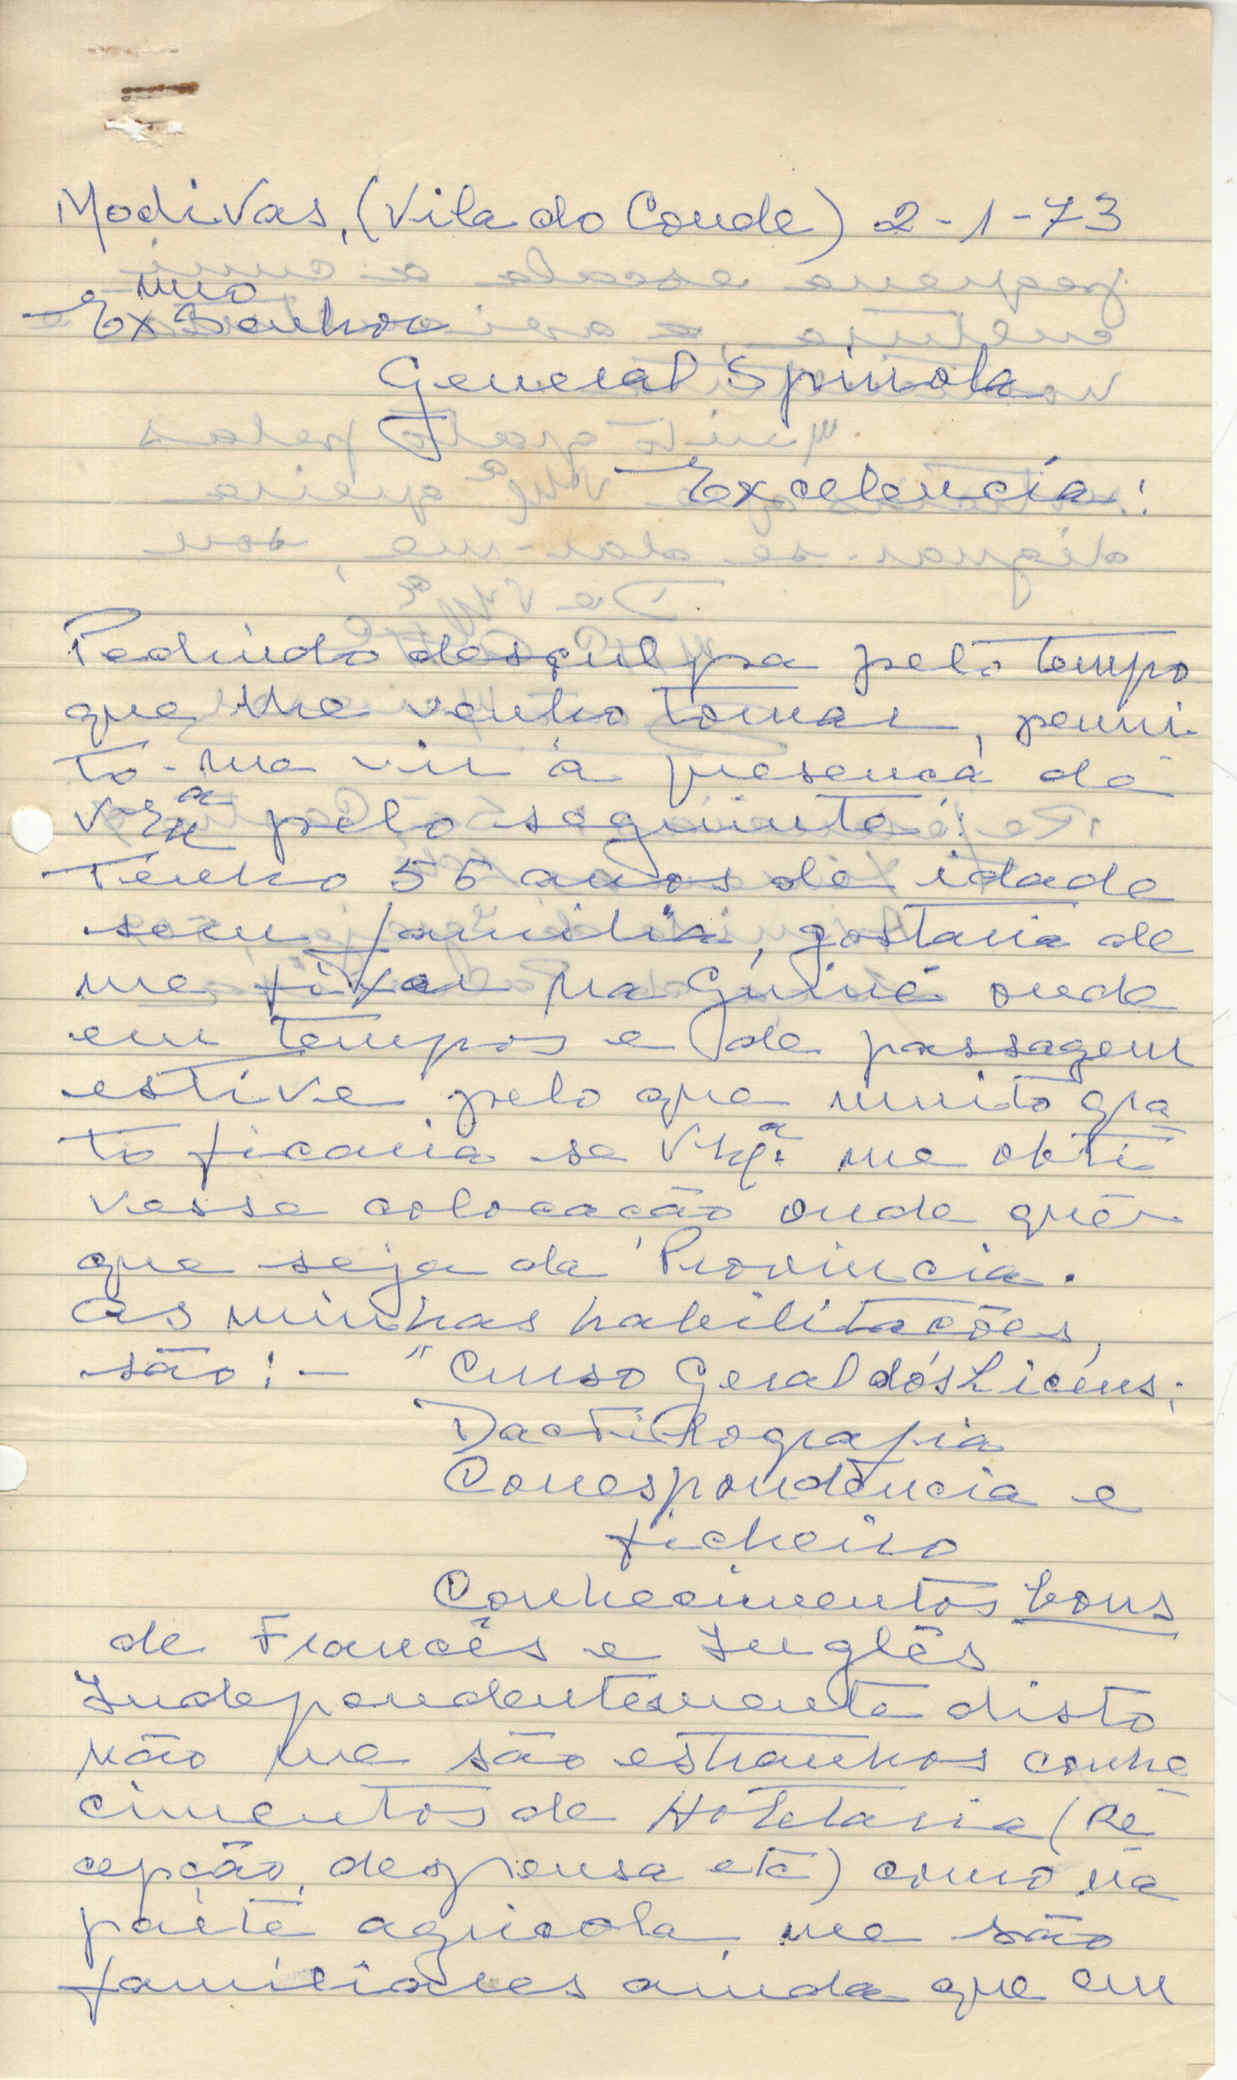 Modivas, (Vila do Conde) 2-1-73
Exmo Senhor
General Spinola
Excelencia:
Pedindo desculpa pelo tempo
que lhe venho tomar, permi-
to-me vir á presença de
V Exª pelo seguinte:
Tenho 55 anos de idade
sem familia, gostaria de
me fixar na Guiné onde
em tempos e de passagem
estive pelo que muito gra
to ficaria se V Exª me obti
vesse colocação onde quer
que seja da Provincia.
As minhas habilitações,
são: - " Curso Geral dos Liceus;
Dactilografia
Correspondência e
ficheiro
Conhecimentos bons
de Francês e Inglês
Independentemente disto
não me são estranhos conhe
cimentos de Hotelaria (Re
cepção, despensa etc) como na
parte agricola, me são
familiares ainda que em